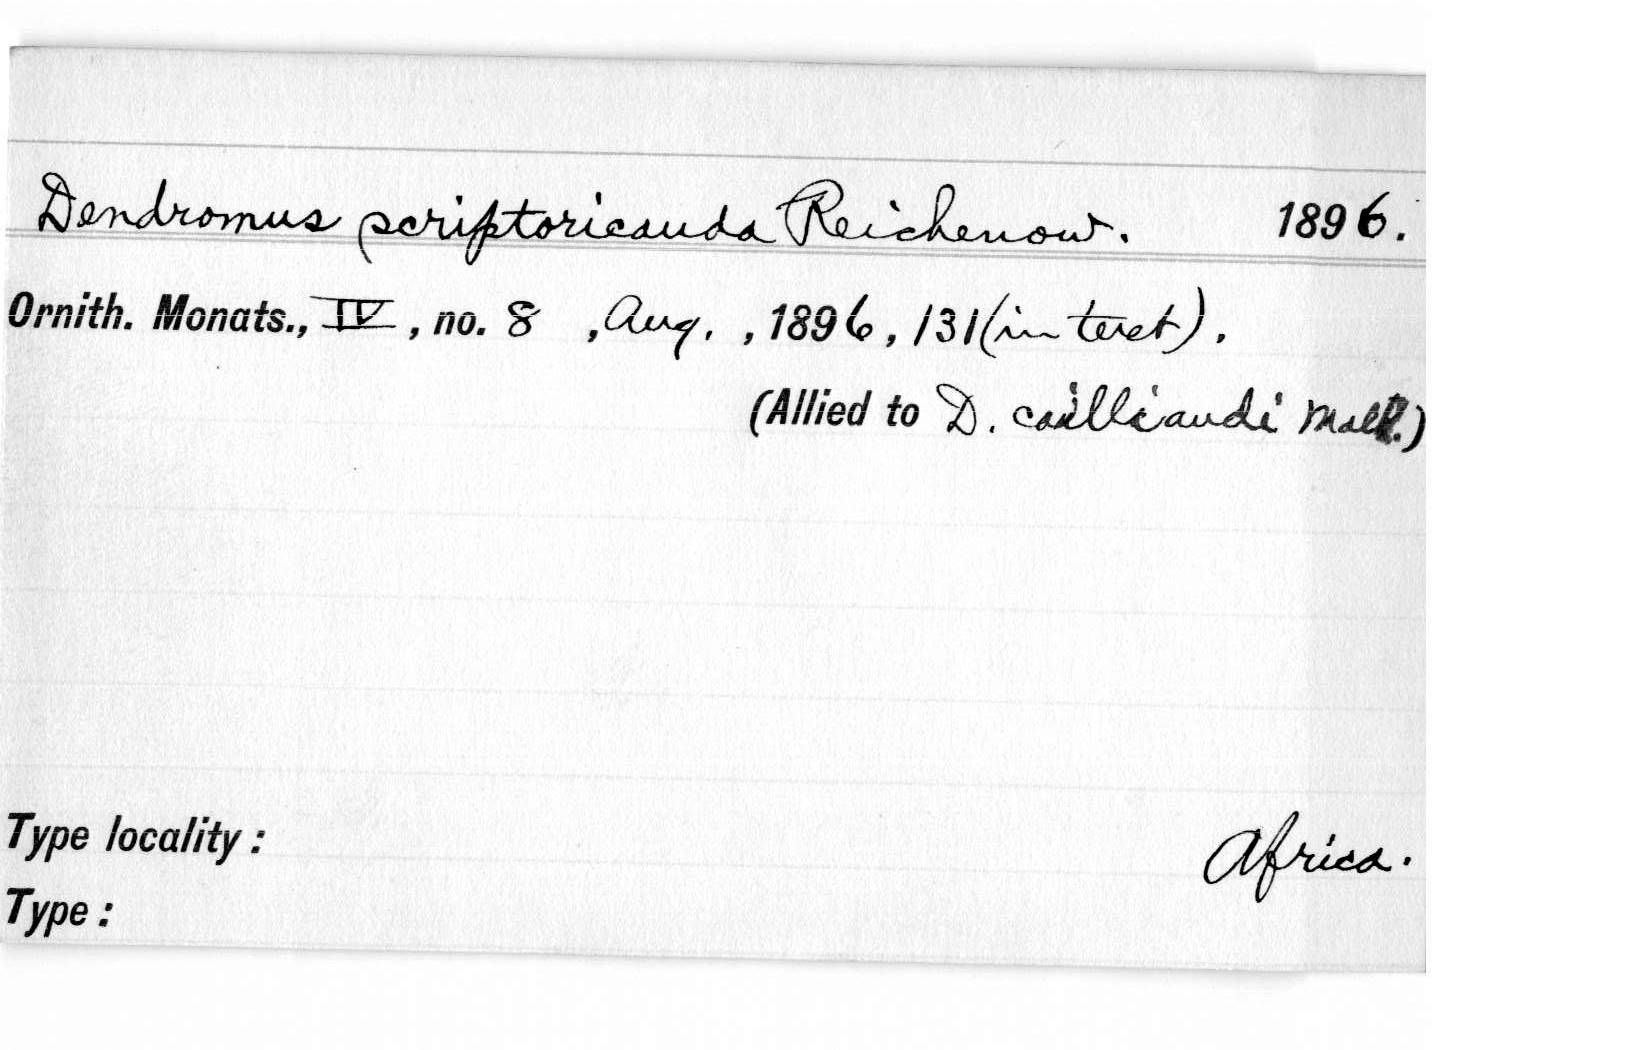 Dendromus scriptoricauda Reichenow. 1896.
Ornith. Monats., IV, no. 8 , Aug. , 1896, 131 (in text).
(Allied to D. cailliaudi Malh.)
Type locality : Africa.
Type :